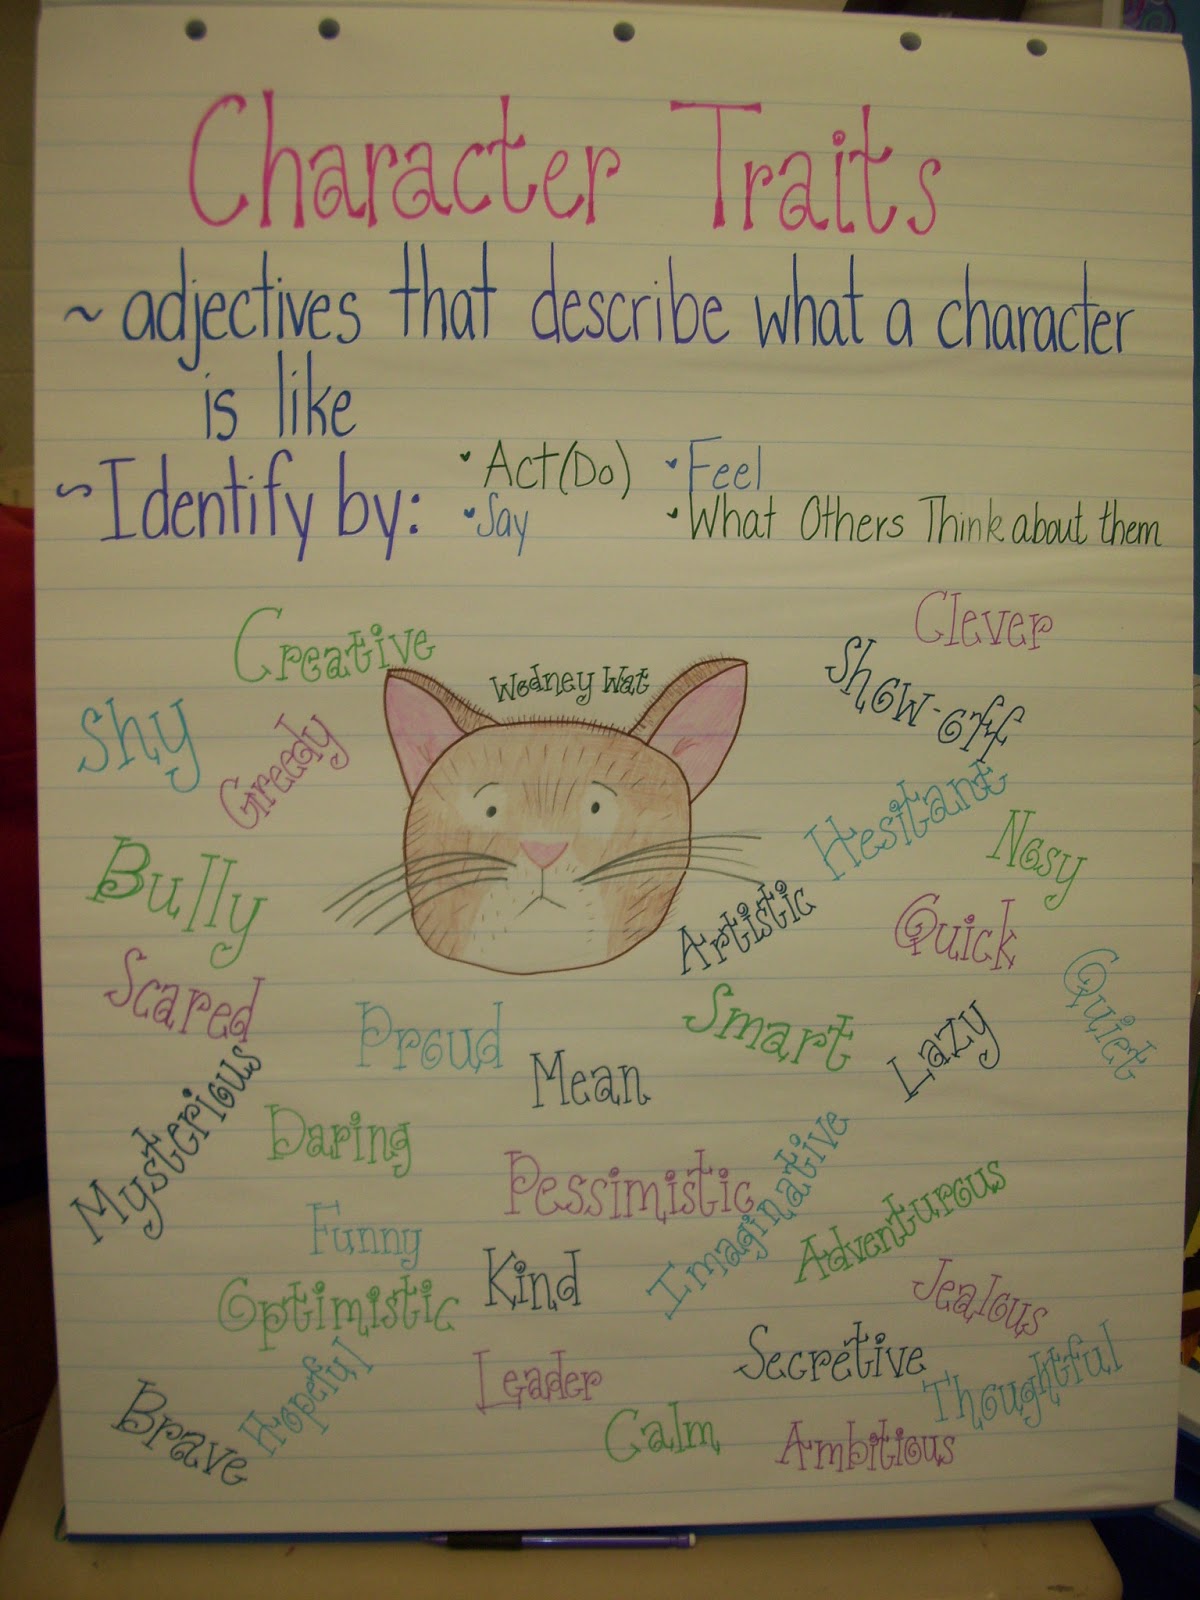 Character Traits
~ adjectives that describe what a character
is like
~ Identify by:
• Act (Do)
• Feel
• Say
• What Others Think about them
Creative
Wodney Wat
Clever
Show-off
Shy
Greedy
Hesitant
Nosy
Bully
Artistic
Quick
Scared
Quiet
Proud
Smart
Mean
Lazy
Mysterious
Daring
Pessimistic
Imaginative
Adventurous
Funny
Optimistic
Kind
Jealous
Secretive
Thoughtful
Hopeful
Leader
Brave
Calm
Ambitious